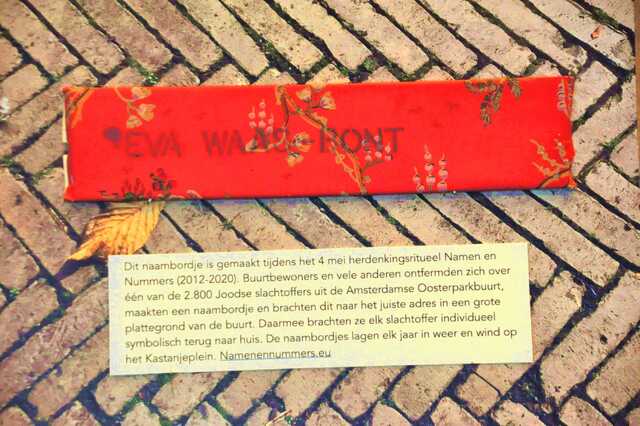 EVA WAAS-PONT
Dit naambordje is gemaakt tijdens het 4 mei herdenkingsritueel Namen en
Nummers (2012-2020). Buurtbewoners en vele anderen ontfermden zich over
één van de 2.800 Joodse slachtoffers uit de Amsterdamse Oosterparkbuurt,
maakten een naambordje en brachten dit naar het juiste adres in een grote
plattegrond van de buurt. Daarmee brachten ze elk slachtoffer individueel
symbolisch terug naar huis. De naambordjes lagen elk jaar in weer en wind op
het Kastanjeplein. Namenennummers.eu